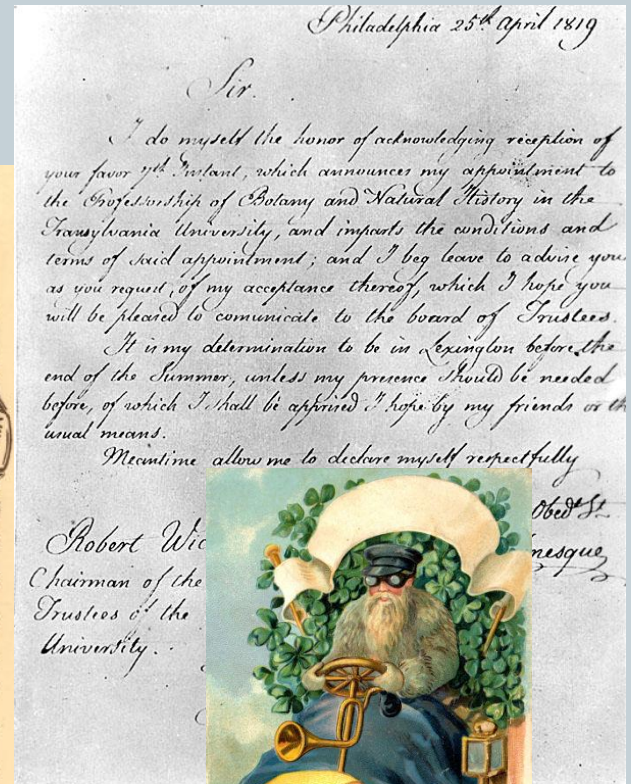 Philadelphia 25th April 1819
Sir.
I do myself the honor of acknowledging reception of
your favor 7th Instant, which announces my appointment to
the Professorship of Botany and Natural History in the
Transylvania University, and imparts the conditions and
terms of said appointment; and I beg leave to advise you
as you request, of my acceptance thereof, which I hope you
will be pleased to comunicate to the board of Trustees.
It is my determination to be in Lexington before the
end of the Summer, unless my presence should be needed
before, of which I shall be apprised I hope by my friends or th
usual means.
Meantime allow me to declare myself respectfully
Obedt St
Robert Wic
nesque
Chairman of the
Trustees of the
University.